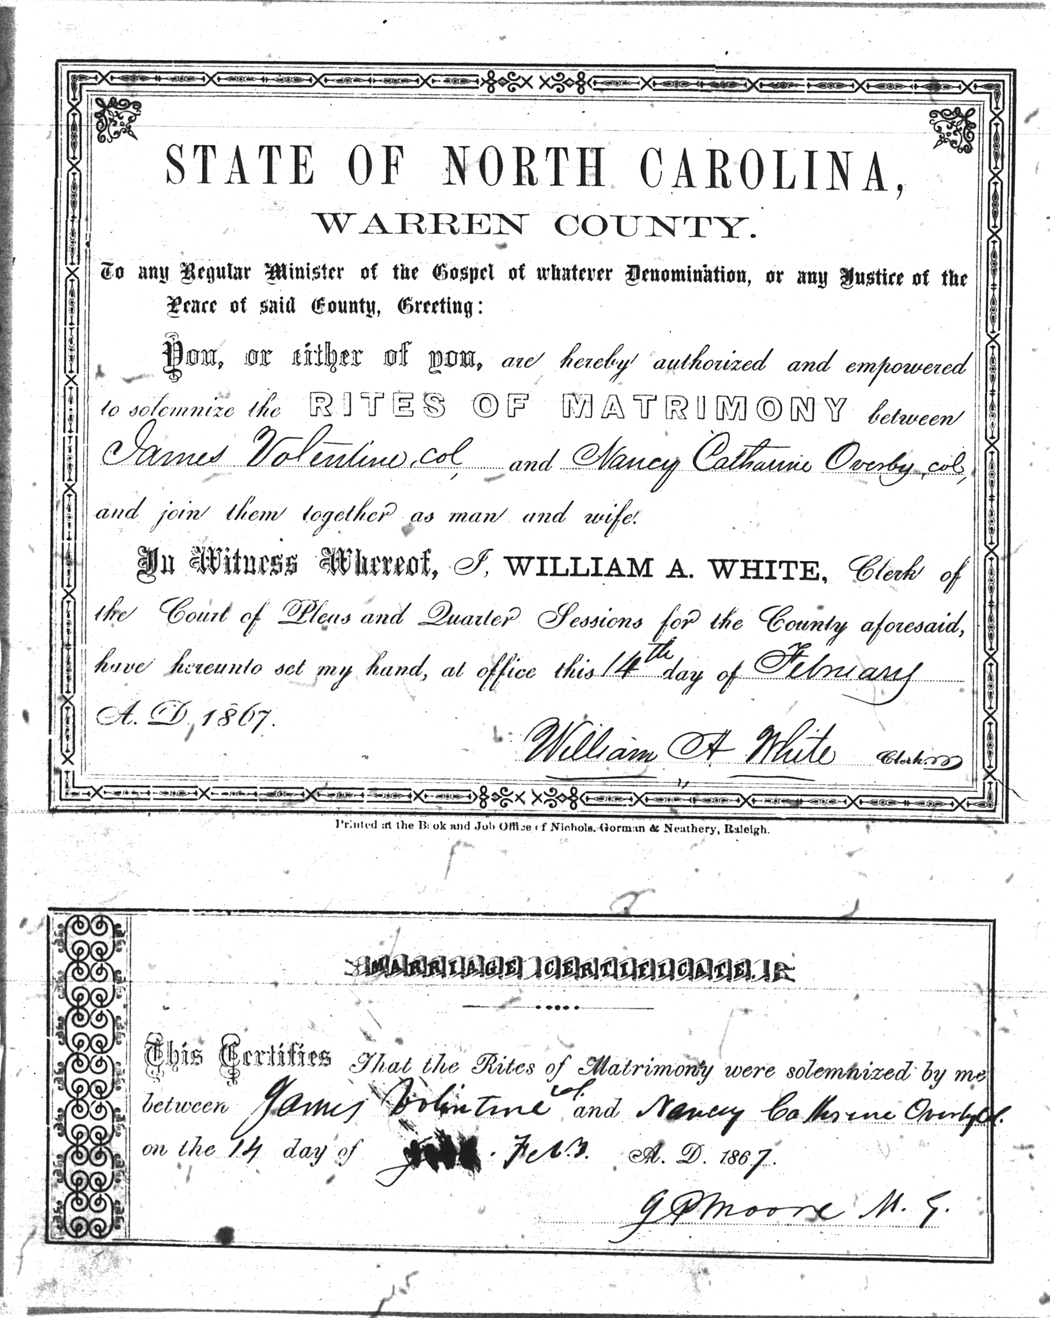 STATE OF NORTH CAROLINA,
WARREN COUNTY.
To any Regular Minister of the Gospel of whatever Denomination, or any Justice of the
Peace of said County, Greeting:
You, or either of you, are hereby authorized and empowered
to solemnize the RITES OF MATRIMONY between
James Volentine, col, and Nancy Catharine Overby, col,
and join them together as man and wife.
In Witness Whereof, I, WILLIAM A. WHITE, Clerk of
the Court of Pleas and Quarter Sessions for the County aforesaid,
have hereunto set my hand, at office this 14th day of February
A. D. 1867.
William A White Clerk
Printed at the Book and Job Office of Nichols, Gorman & Neathery, Raleigh.
MARRIAGE CERTIFICATE.
This Certifies That the Rites of Matrimony were solemnized by me
between James Volintine col and Nancy Catherine Overby col.
on the 14 day of Feb. A. D. 1867.
G P Moore M. G.